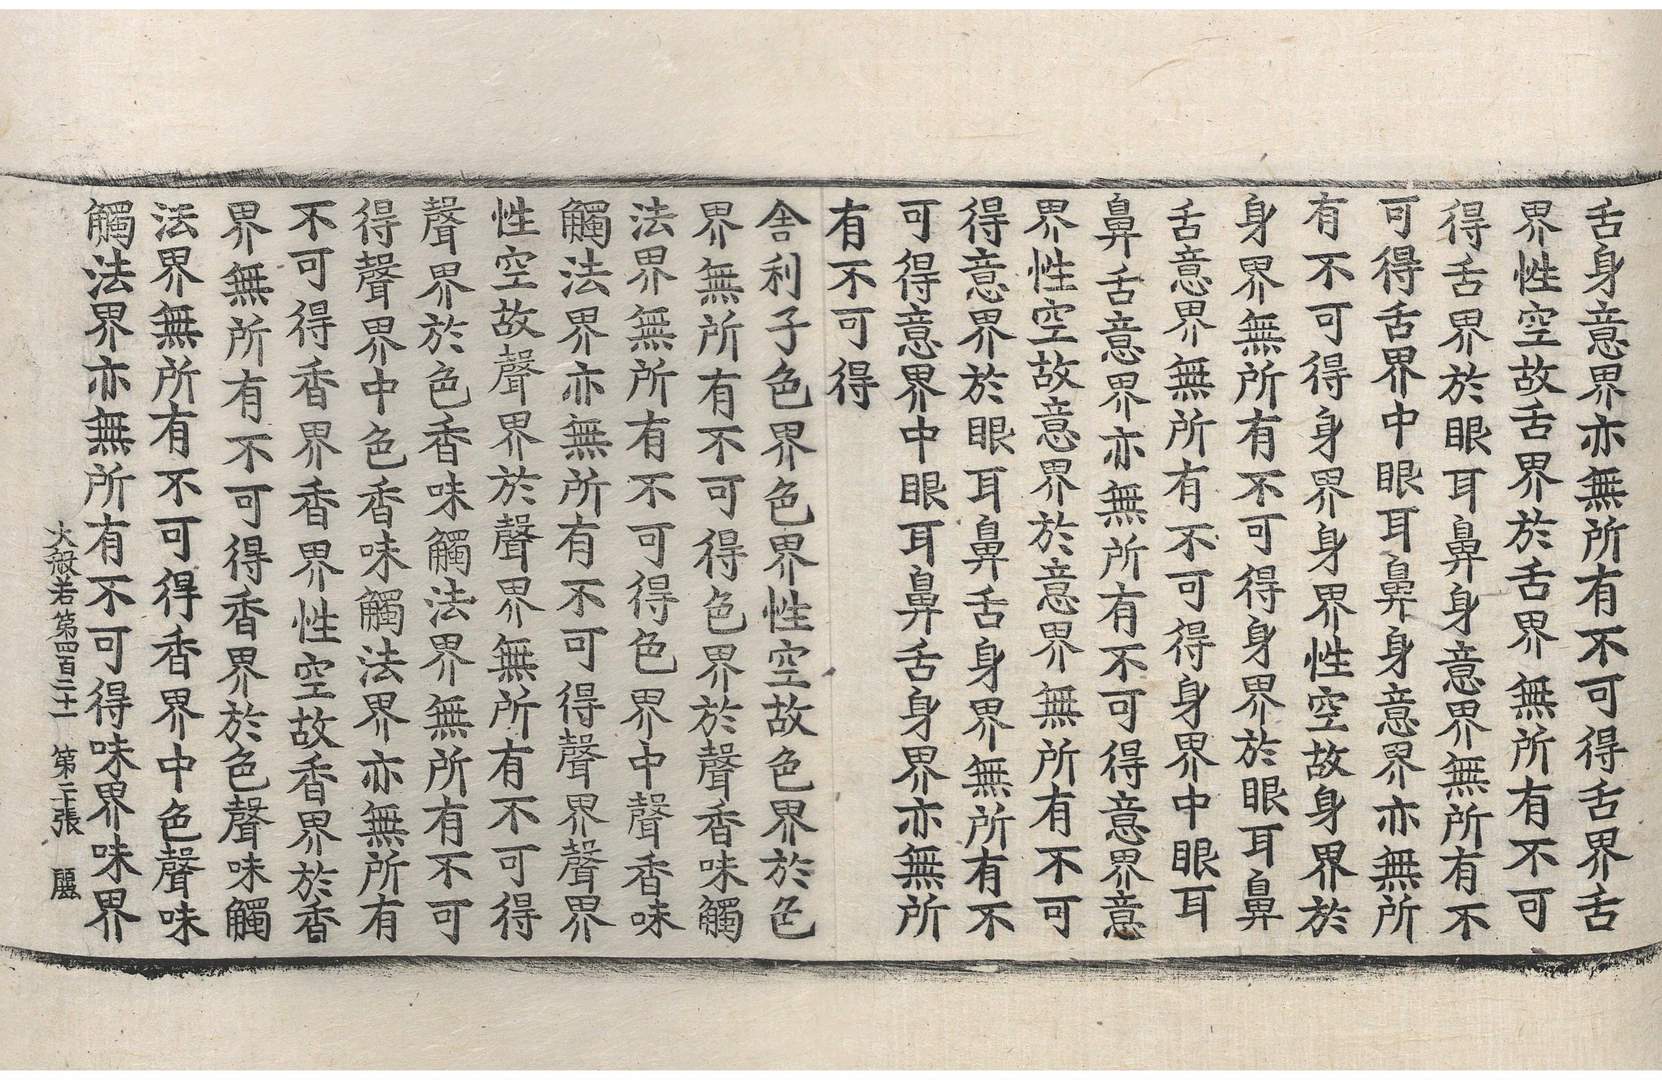 舌身意界亦無所有不可得舌界舌
界性空故舌界於舌界無所有不可
得舌界於眼耳鼻身意界無所有不
可得舌界中眼耳鼻身意界亦無所
有不可得身界身界性空故身界於
身界無所有不可得身界於眼耳鼻
舌意界無所有不可得身界中眼耳
鼻舌意界亦無所有不可得意界意
界性空故意界於意界無所有不可
得意界於眼耳鼻舌身界無所有不
可得意界中眼耳鼻舌身界亦無所
有不可得
舍利子色界色界性空故色界於色
界無所有不可得色界於聲香味觸
法界無所有不可得色界中聲香味
觸法界亦無所有不可得聲界聲界
性空故聲界於聲界無所有不可得
聲界於色香味觸法界無所有不可
得聲界中色香味觸法界亦無所有
不可得香界香界性空故香界於香
界無所有不可得香界於色聲味觸
法界無所有不可得香界中色聲味
觸法界亦無所有不可得味界味界
大般若第四百二十一 第二張 麗